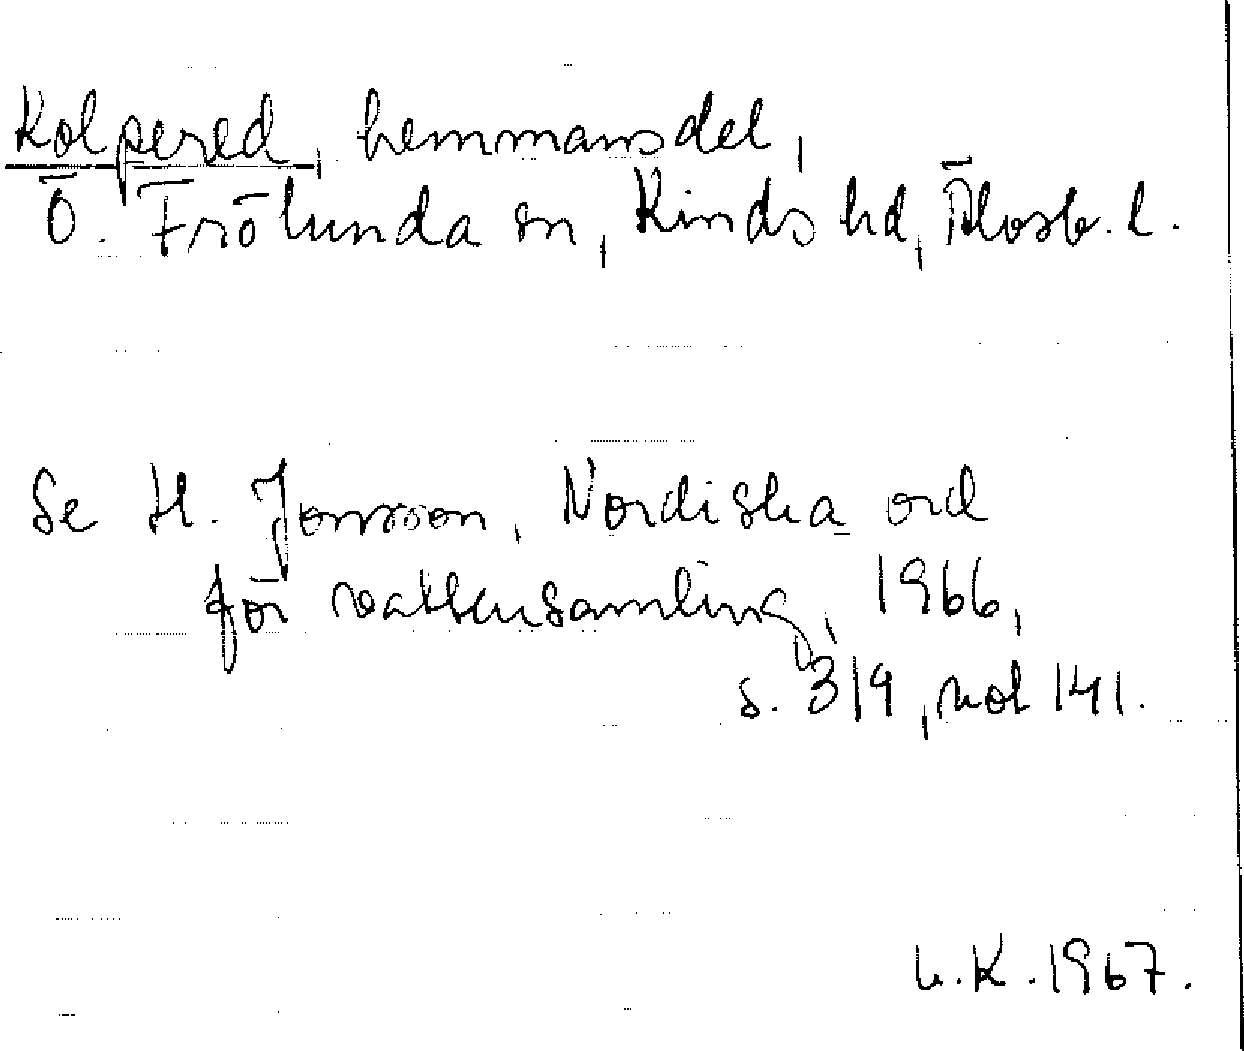 Kolpered, hemmansdel,
Ö. Frölunda sn, Kinds hd, Älvsb. l.
Se H. Jonsson, Nordiska ord
för vattensamling, 1966,
s. 319, not 141.
L.K. 1967.